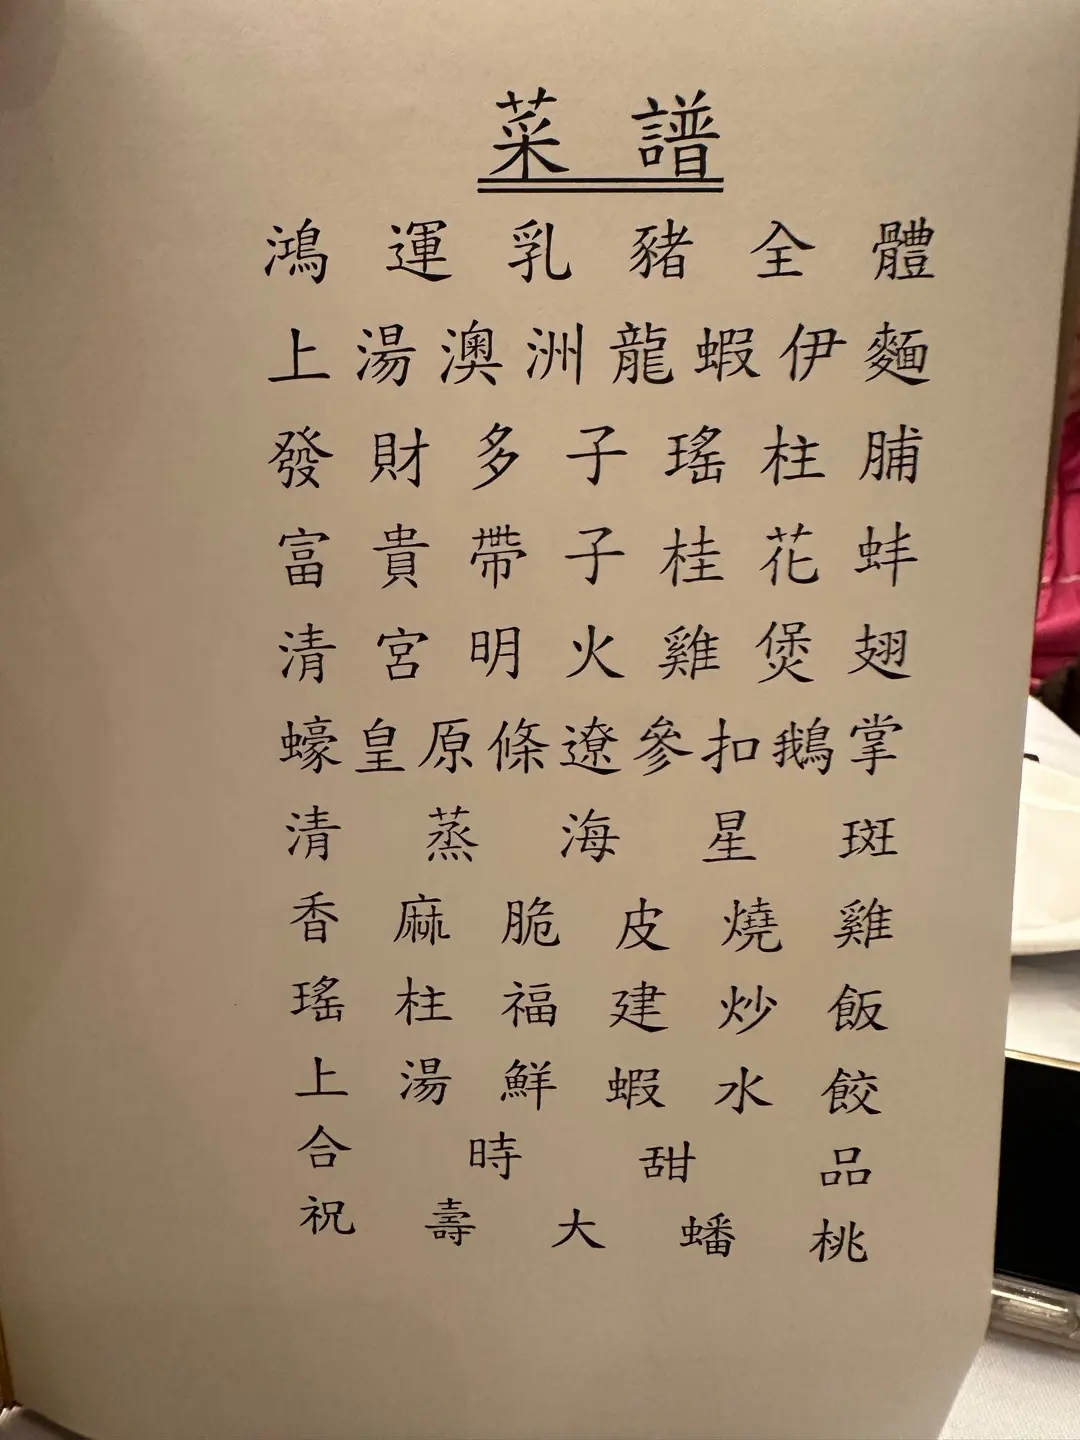 菜譜
鴻運乳豬全體
上湯澳洲龍蝦伊麵
發財多子瑤柱脯
富貴帶子桂花蚌
清宮明火雞煲翅
蠔皇原條遼參扣鵝掌
清蒸海星斑
香麻脆皮燒雞
瑤柱福建炒飯
上湯鮮蝦水餃
合時甜品
祝壽大蟠桃